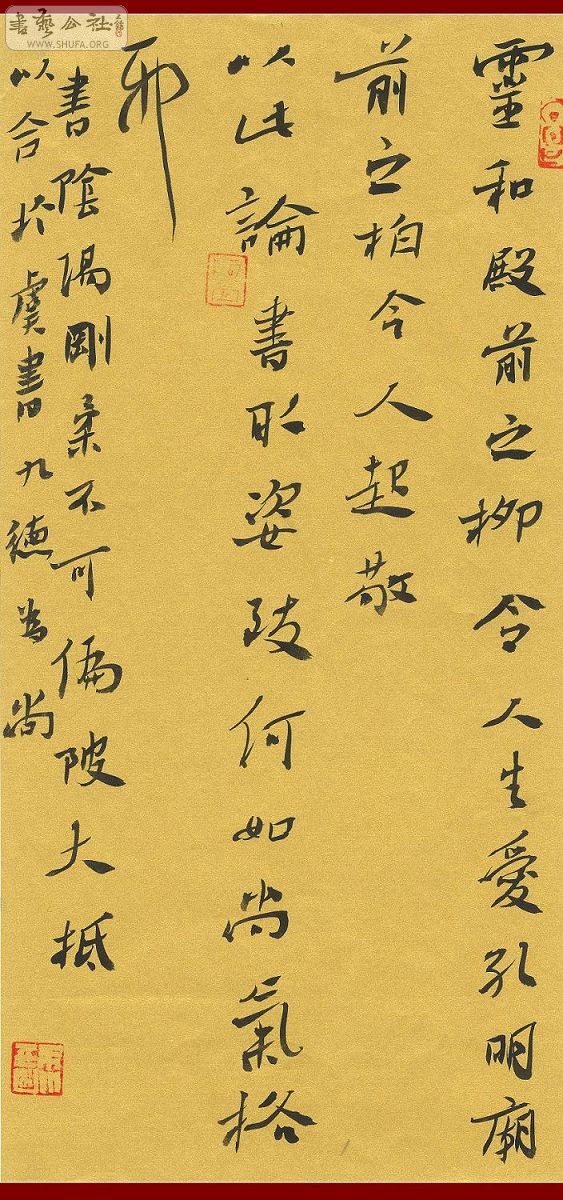 靈和殿前之柳令人生愛孔明廟
前之柏令人起敬
以此論書取姿致何如尚氣格
邪
書陰陽剛柔不可偏陂大抵
以合於虞書九德為尚
書藝公社
WWW.SHUFA.ORG